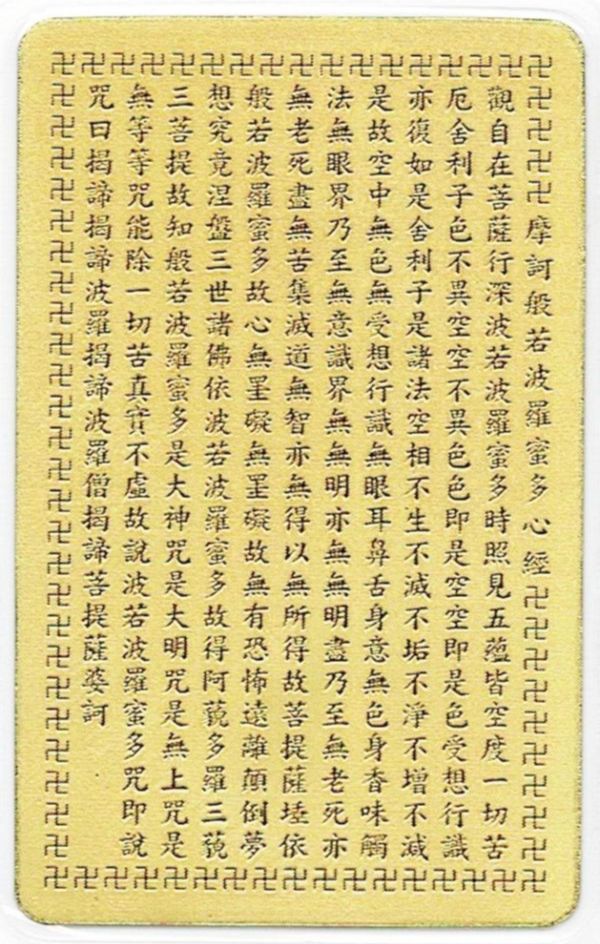 摩訶般若波羅蜜多心經
觀自在菩薩行深波若波羅蜜多時照見五蘊皆空度一切苦
厄舍利子色不異空空不異色色即是空空即是色受想行識
亦復如是舍利子是諸法空相不生不滅不垢不淨不增不減
是故空中無色無受想行識無眼耳鼻舌身意無色身香味觸
法無眼界乃至無意識界無無明亦無無明盡乃至無老死亦
無老死盡無苦集滅道無智亦無得以無所得故菩提薩埵依
般若波羅蜜多故心無罣礙無罣礙故無有恐怖遠離顛倒夢
想究竟涅盤三世諸佛依波若波羅蜜多故得阿藐多羅三藐
三菩提故知般若波羅蜜多是大神咒是大明咒是無上咒是
無等等咒能除一切苦真實不虛故說波若波羅蜜多咒即說
咒曰揭諦揭諦波羅揭諦波羅僧揭諦菩提薩婆訶